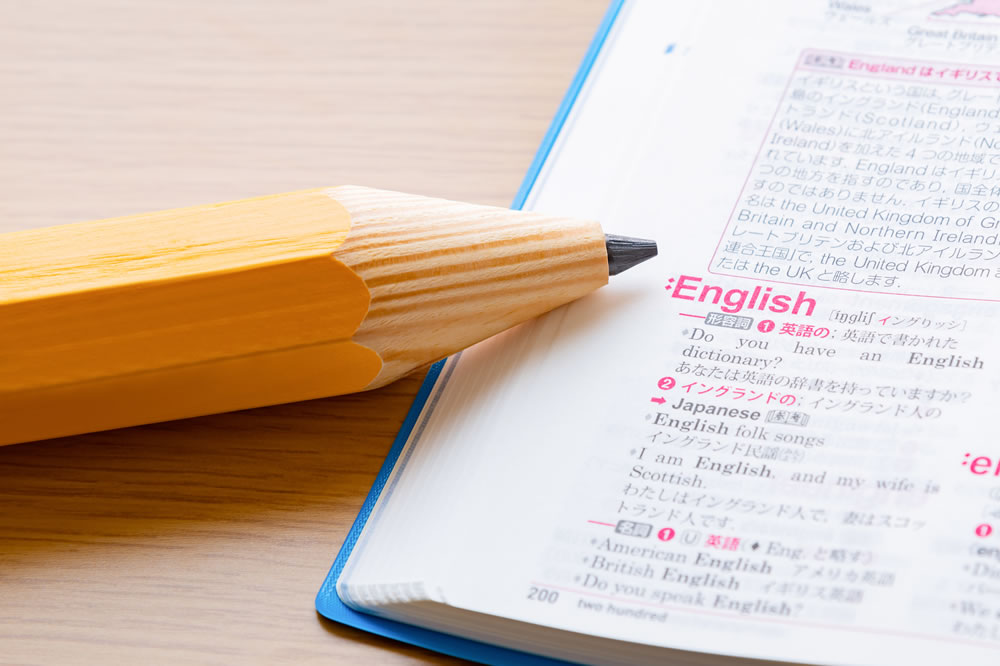 Wales
ウェールズ
Great Britain
グレートブリテ
England はイギリスで
イギリスという国は, グレー
島のイングランド(England
トランド(Scotland), ウェ
(Wales)に北アイルランド(No
Ireland)を加えた4つの地域で
れています. England はイギリ
つの地方を指すのであり, 国全体
すのではありません. イギリスの
名は the United Kingdom of Gr
Britain and Northern Ireland
レートブリテンおよび北アイルラン
連合王国」で, the United Kingdom
たは the UK と略します.
English [íŋgliʃ イングリッシ]
形容詞 ❶ 英語の; 英語で書かれた
Do you have an English
dictionary?
あなたは英語の辞書を持っていますか?
❷ イングランドの; イングランド人の
➡ Japanese
English folk songs
イングランド民謡
I am English, and my wife is
Scottish.
わたしはイングランド人で, 妻はスコッ
トランド人です.
名詞 ❶ U 英語 (♦ Eng. と略す)
American English アメリカ英語
British English イギリス英語
Do you speak English?
200 two hundred
❶